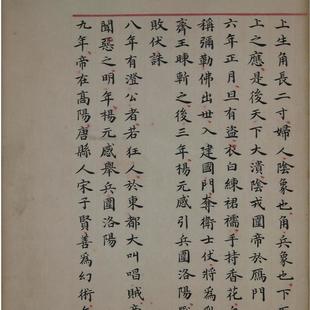 上生角長二寸婦人陰象也角兵象也下
上之應是後天下大潰陰戎圍帝於鴈門
六年正月旦有盜衣白練裙襦手持香花
稱彌勒佛出世入建國門奪衛士仗將為
齊王暕斬之後三年楊元感引兵圍洛陽
敗伏誅
八年有澄公者若狂人於東都大叫唱賊
聞惡之明年楊元感舉兵圍洛陽
九年帝在高陽唐縣人宋子賢善為幻術